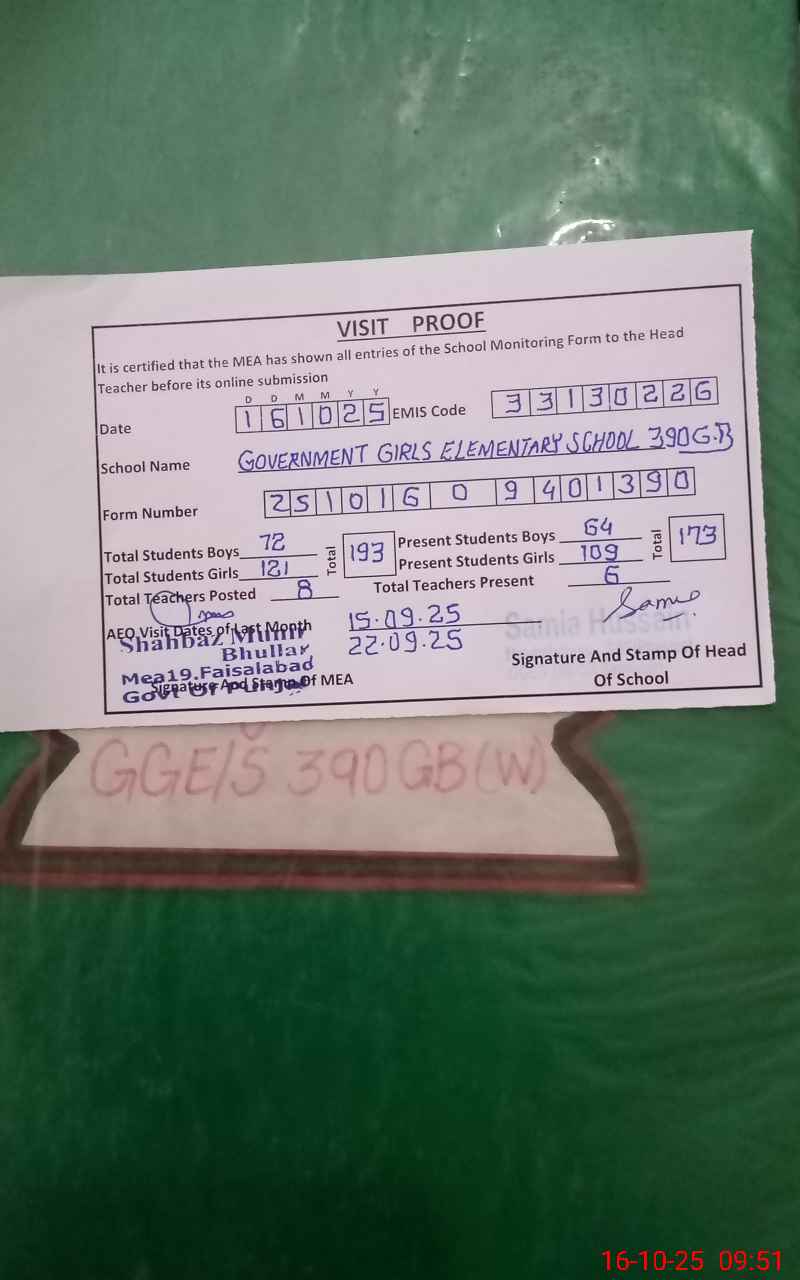 VISIT PROOF
It is certified that the MEA has shown all entries of the School Monitoring Form to the Head
Teacher before its online submission
D D M M Y Y
Date 161025 EMIS Code 33130226
School Name GOVERNMENT GIRLS ELEMENTARY SCHOOL 390G.B
Form Number 25101609401390
Total Students Boys 72 Total 193 Present Students Boys 64 Total 173
Total Students Girls 121 Present Students Girls 109
Total Teachers Posted 8 Total Teachers Present 6
AEO Visit Dates of Last Month 15.09.25
22.09.25
Shahbaz Munir
Bhullar
Mea19.Faisalabad
Govt Of Punjab
Signature And Stamp Of MEA
Samia Hussain
Signature And Stamp Of Head
Of School
GGE/S 390 GB(W)
16-10-25 09:51